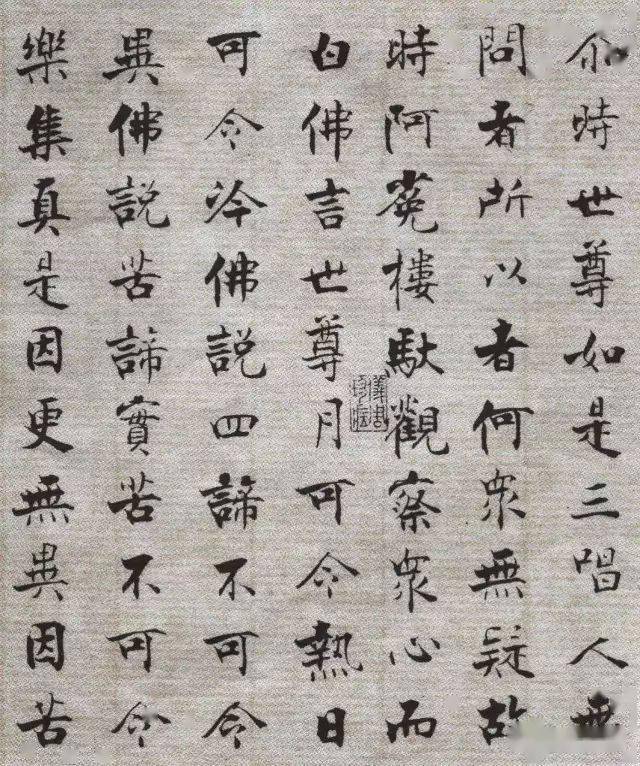 尒時世尊如是三唱人無
問者所以者何衆無疑故
時阿菟樓馱觀察衆心而
白佛言世尊月可令熱日
可令冷佛説四諦不可令
異佛説苦諦實苦不可令
樂集真是因更無異因苦